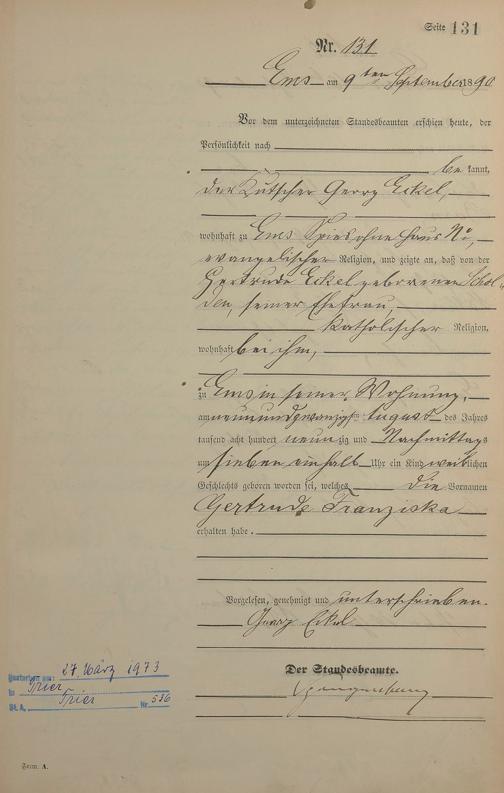 Seite 131
Nr. 131
Ems am 9ten September 1890
Vor dem unterzeichneten Standesbeamten erschien heute, der
Persönlichkeit nach
be kannt,
der Kutscher Georg Eckel,
wohnhaft zu Ems Spies ohne Haus No,
evangelischer Religion, und zeigte an, daß von der
Gertrude Eckel geborenen Schol
den, seiner Ehefrau,
katholischer Religion,
wohnhaft bei ihm,
zu Ems in seiner Wohnung,
am neunundzwanzigsten August des Jahres
tausend acht hundert neunzig und Nachmittags
um sieben einhalb Uhr ein Kind weiblichen
Geschlechts geboren worden sei, welches die Vornamen
Gertrude Franziska
erhalten habe.
Vorgelesen, genehmigt und unterschrieben.
Georg Eckel
Der Standesbeamte.
Gestorben am: 27. März 1973
in Trier
St. A. Trier Nr. 536
Form. A.